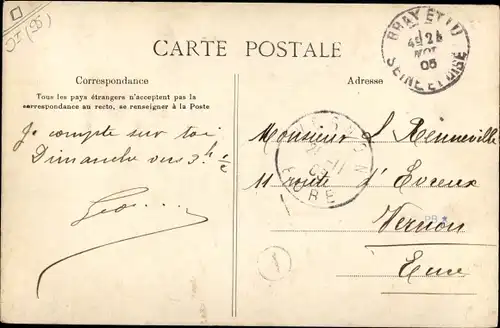 CARTE POSTALE
Correspondance
Tous les pays étrangers n'acceptent pas la
correspondance au recto, se renseigner à la Poste
Je compte sur toi
Dimanche vers 3h 1/2
Adresse
Monsieur L Renneville
11 route d'Evreux
Vernon
Eure
BRAY ET LU
05
SEINE ET OISE
VERNON
EURE
1